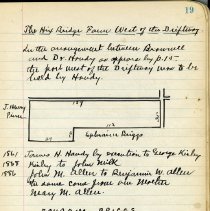 19
The Hix Bridge Farm West of the Driftway
In the arrangement between Brownell
and Dr. Handy as appears by p. 15-
the part west of the Driftway was to be
held by Handy.
J. Henry
Ephraim Briggs
1861 James H. Handy by execution to George Kirby
Kirby to John Milk
1886 John M. Allen to Benjamin W. Allen
the same came from his Mother
Mary M. Allen.
BRIGGS